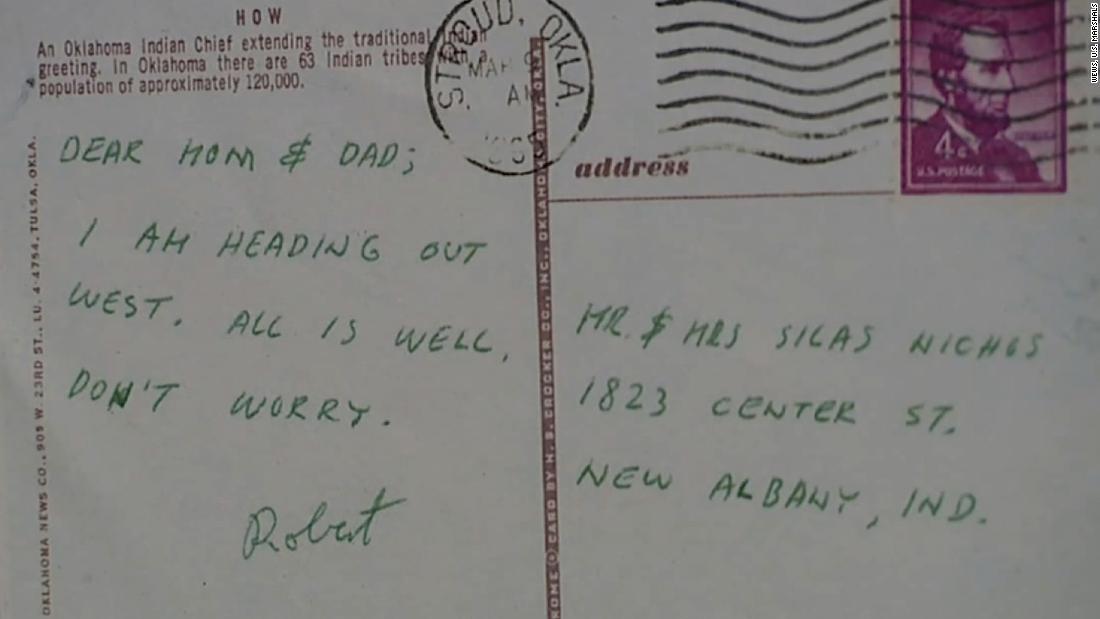 HOW
An Oklahoma Indian Chief extending the traditional
greeting. In Oklahoma there are 63 Indian tribes
population of approximately 120,000.
DEAR MOM & DAD;
I AM HEADING OUT
WEST. ALL IS WELL,
DON'T WORRY.
Robert
OKLAHOMA NEWS CO., 905 W. 23RD ST., LU. 4-4754, TULSA, OKLA.
STROUD, OKLA.
MAR
AM
CARD BY H. S. CROCKER CO., INC., OKLAHOMA CITY, OKLA.
address
4¢
U.S. POSTAGE
MR. & MRS SILAS NICHOLS
1823 CENTER ST.
NEW ALBANY, IND.
WEWS, US MARSHALS